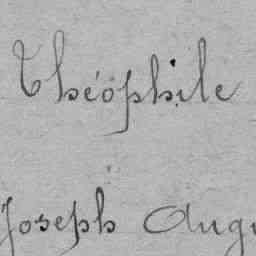 Théophile
Joseph Augu